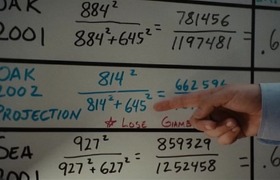 OAK 2001 884² / 884² + 645² = 781456 / 1197481 = .6
OAK 2002 PROJECTION 814² / 814² + 645² = 662596
☆ LOSE GIAMB
SEA 2001 927² / 927² + 627² = 859329 / 1252458 = .6